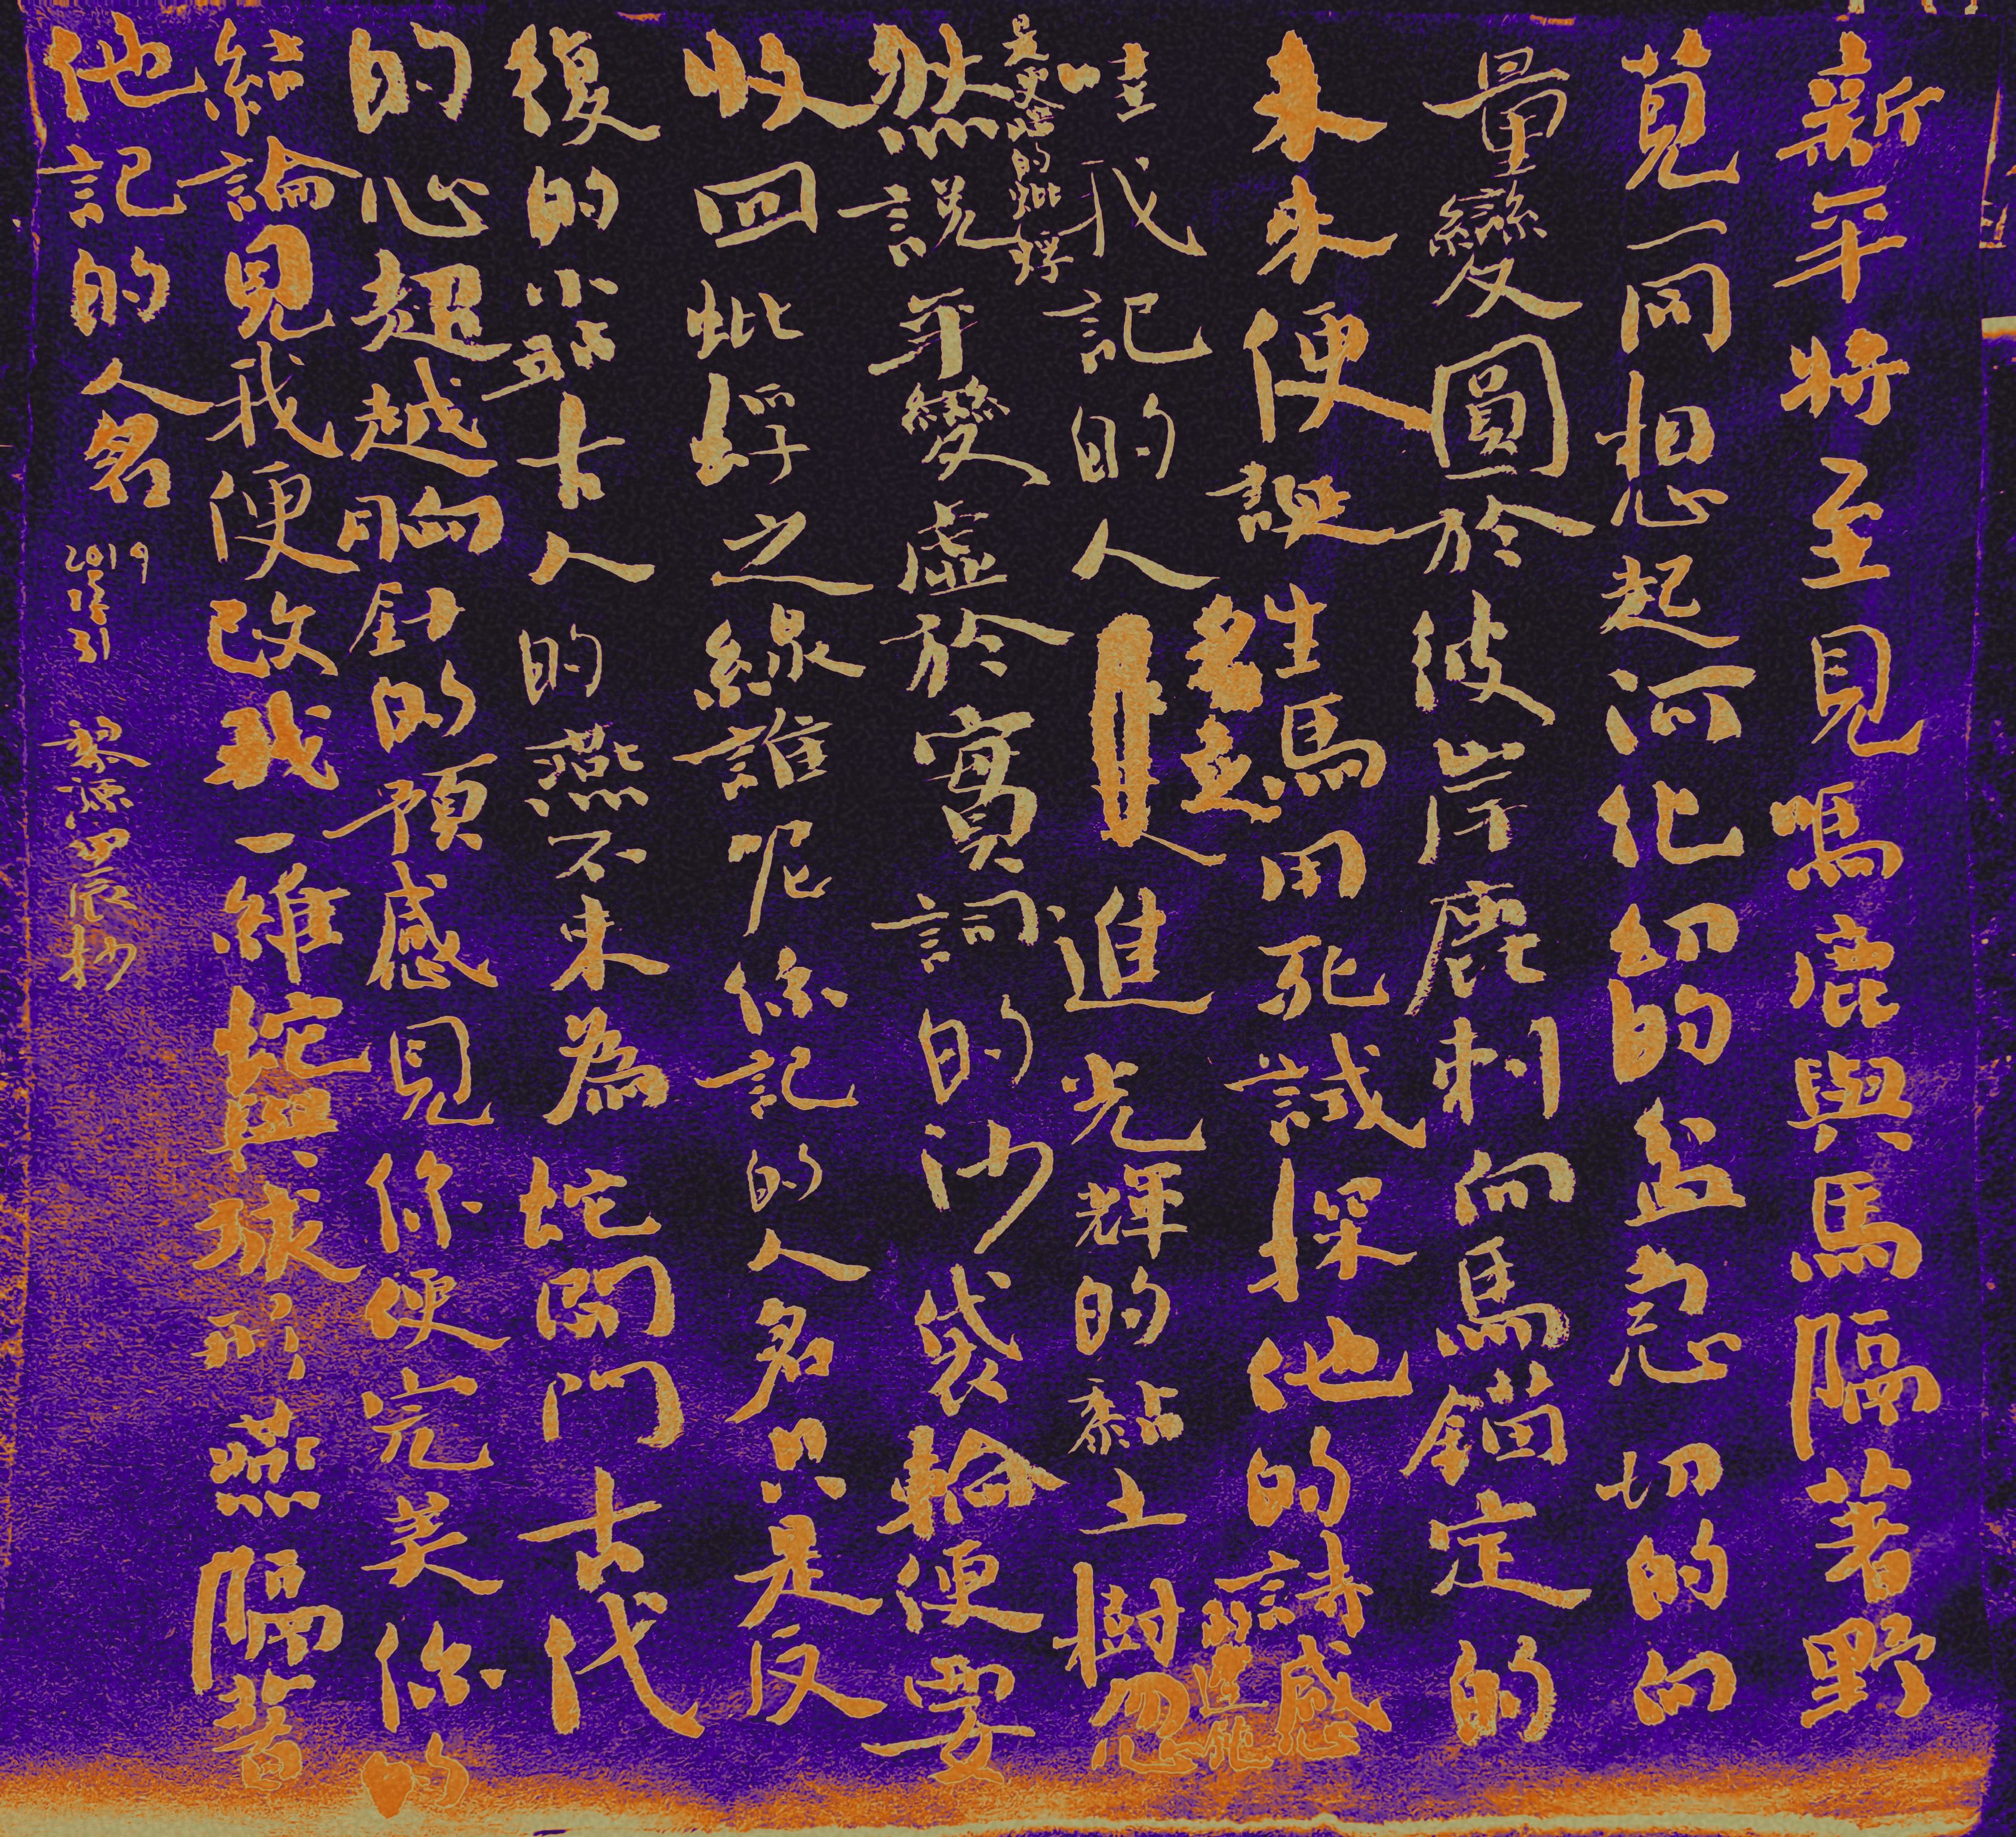 新年將至見嗎鹿與馬隔著野
莧一同想起河化紉的盆忽切的向
量變圓於彼岸鹿刺向馬錨定的
未來便誕生馬用死試探他的詩感
名之
哇我記的人 進光輝的黏土樹忽
然說年變虛於實詞的沙袋輪便要
收回蚍蜉之線誰呢你記的人名只是反
復的小站古人的燕不來為蛇開門古代
的心超越胸針的預感見你便完美你的
結論見我便改我一維蛇與球形燕隔著
他記的人名
2019
12
31
黎源 四辰抄